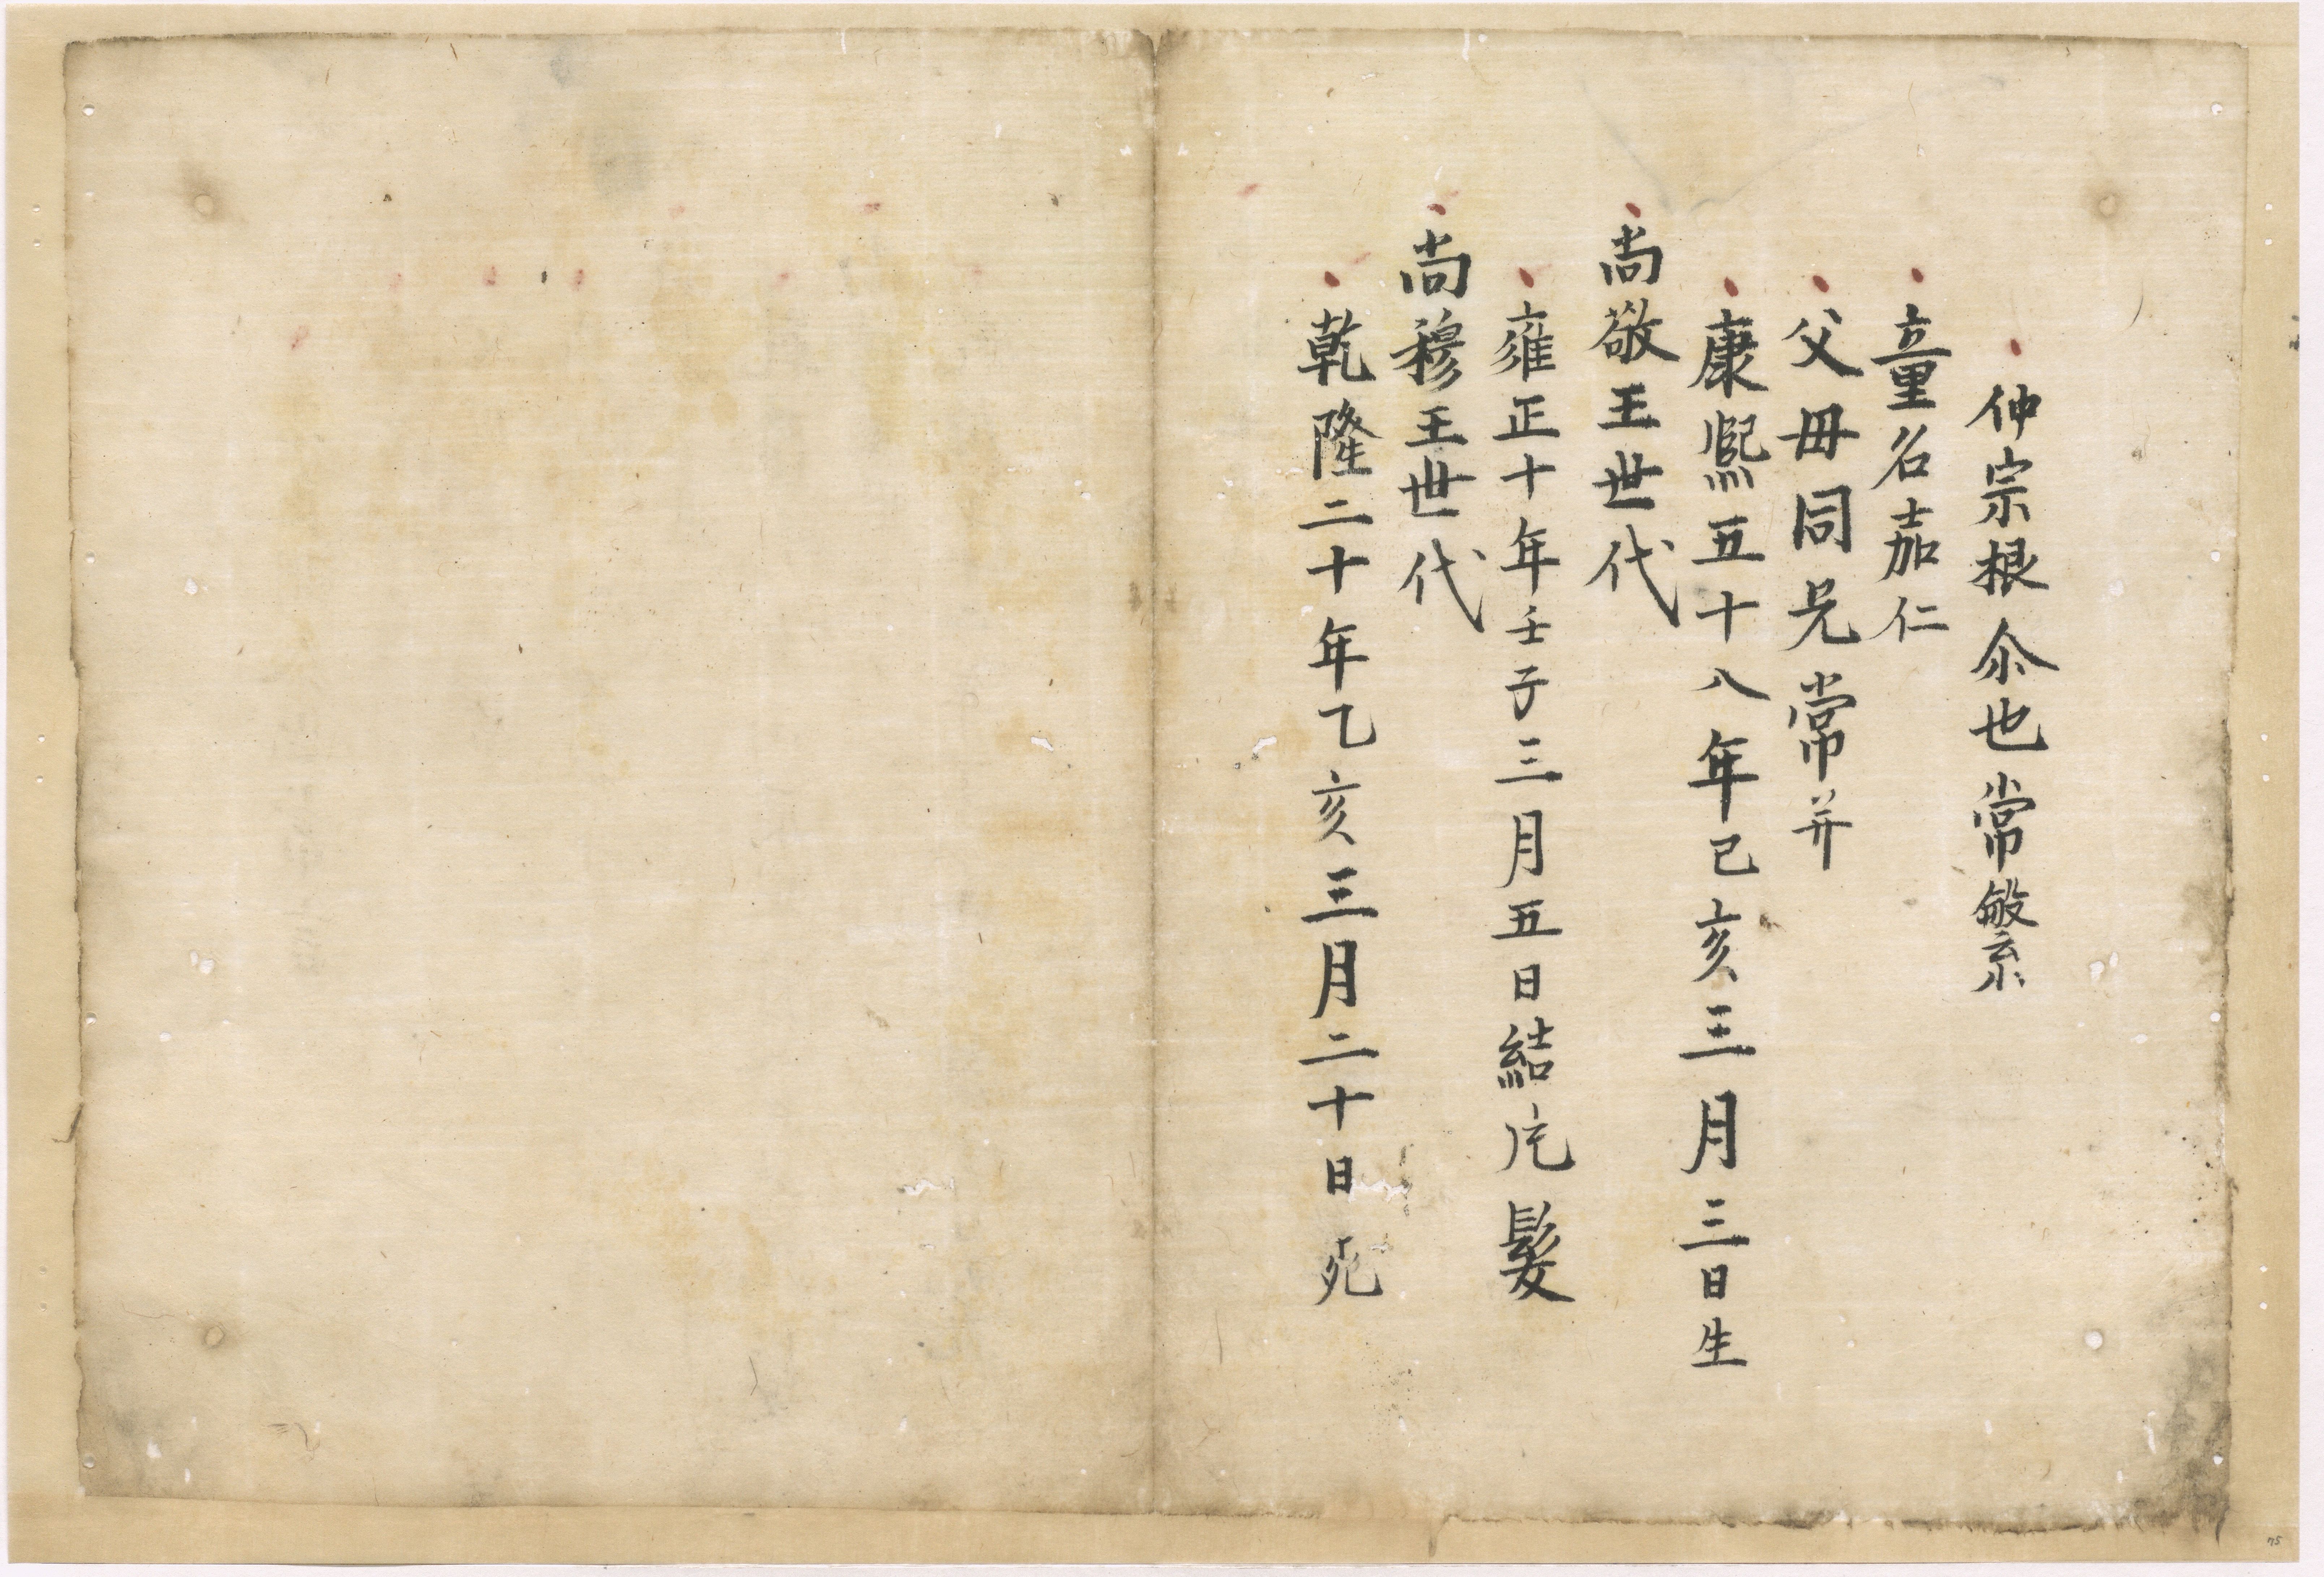 仲宗根尒也常繁
童名嘉仁
父母同兄常并
康熙五十八年己亥三月三日生
尚敬王世代
雍正十年壬子三月五日結髮
尚穆王世代
乾隆二十年乙亥三月二十日死
75